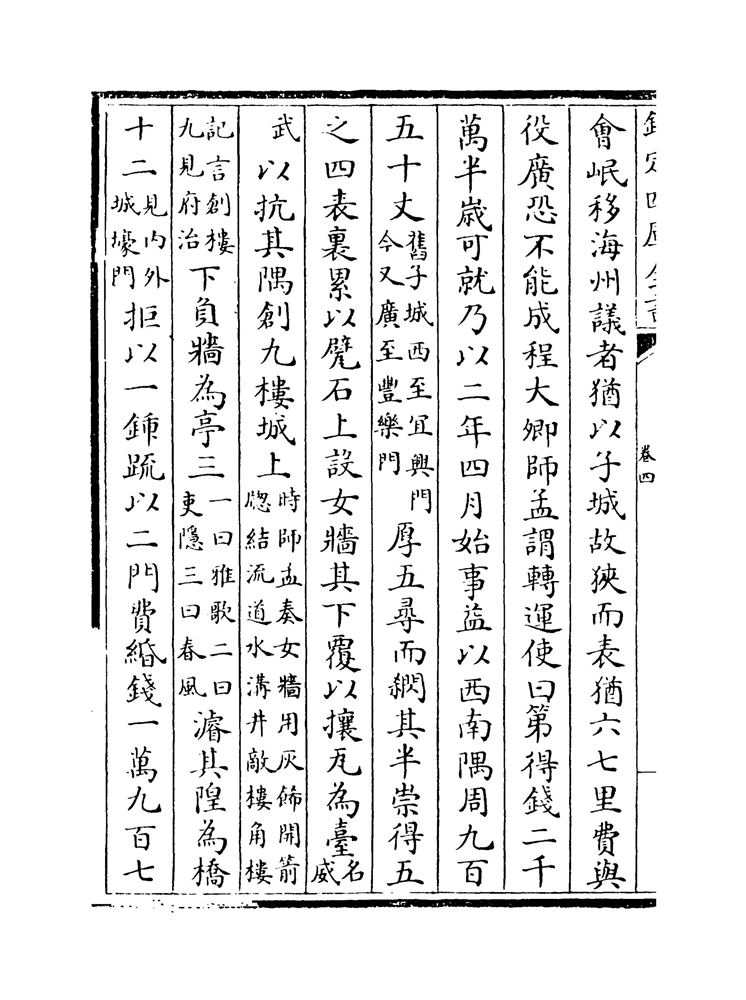 欽定四庫全書
卷四
會岷移海州議者猶以子城故狹而表猶六七里費與
役廣恐不能成程大卿師孟謂轉運使曰第得錢二千
萬半歲可就乃以二年四月始事益以西南隅周九百
五十丈舊子城西至宜興門今又廣至豐樂門厚五尋而其半崇得五
之四表裏累以甓石上設女牆其下覆以攘瓦為臺名威
武以抗其隅創九樓城上時師孟奏女牆用灰飾開箭牕結流道水溝井敵樓角樓
記言創樓九見府治下負牆為亭三一曰雅歌二曰吏隱三曰春風濬其隍為橋
十二見内外城壕門拒以一鍾疏以二門費緡錢一萬九百七